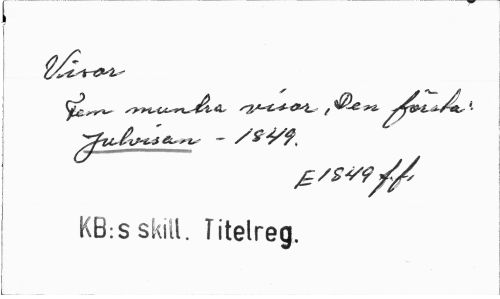 Visor
Fem muntra visor, Den första:
Julvisan - 1849.
E 1849 f.f.
KB:s skill. Titelreg.